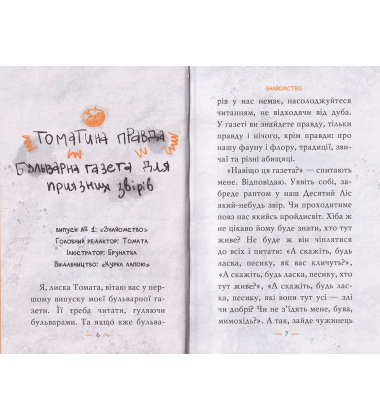 ТОМАТИНА ПРАВДА
БУЛЬВАРНА ГАЗЕТА ДЛЯ
ПРИЗНИХ ЗВІРІВ
ВИПУСК № 1: «ЗНАЙОМСТВО»
ГОЛОВНИЙ РЕДАКТОР: ТОМАТА
ІЛЮСТРАТОР: БРУНАТКА
ВИДАВНИЦТВО: «КУРКА ЛАПОЮ»
Я, лиска Томата, вітаю вас у пер-
шому випуску моєї бульварної га-
зети. Її треба читати, гуляючи
бульварами. Та якщо вже бульва-
6
ЗНАЙОМСТВО
рів у нас немає, насолоджуйтеся
читанням, не відходячи від дуба.
У газеті ви знайдете правду, тільки
правду і нічого, крім правди: про
нашу фауну і флору, традиції, зви-
чаї та різні абищиці.
«Навіщо ця газета?» — спитають
мене. Відповідаю. Уявіть собі, за-
бреде раптом у наш Десятий Ліс
який-небудь звір. Чи проходитиме
повз нас якийсь пройдисвіт. Хіба ж
не цікаво йому буде знати, хто тут
живе? Не буде ж він чіплятися
до всіх і питати: «А скажіть, будь
ласка, песику, як вас кличуть?»,
«А скажіть, будь ласка, песику, хто
тут живе?», «А скажіть, будь лас-
ка, песику, які вони тут усі — злі
чи добрі? Чи не з’їдять мене, бува,
мимохідь?». А так, зайде чужинець
7